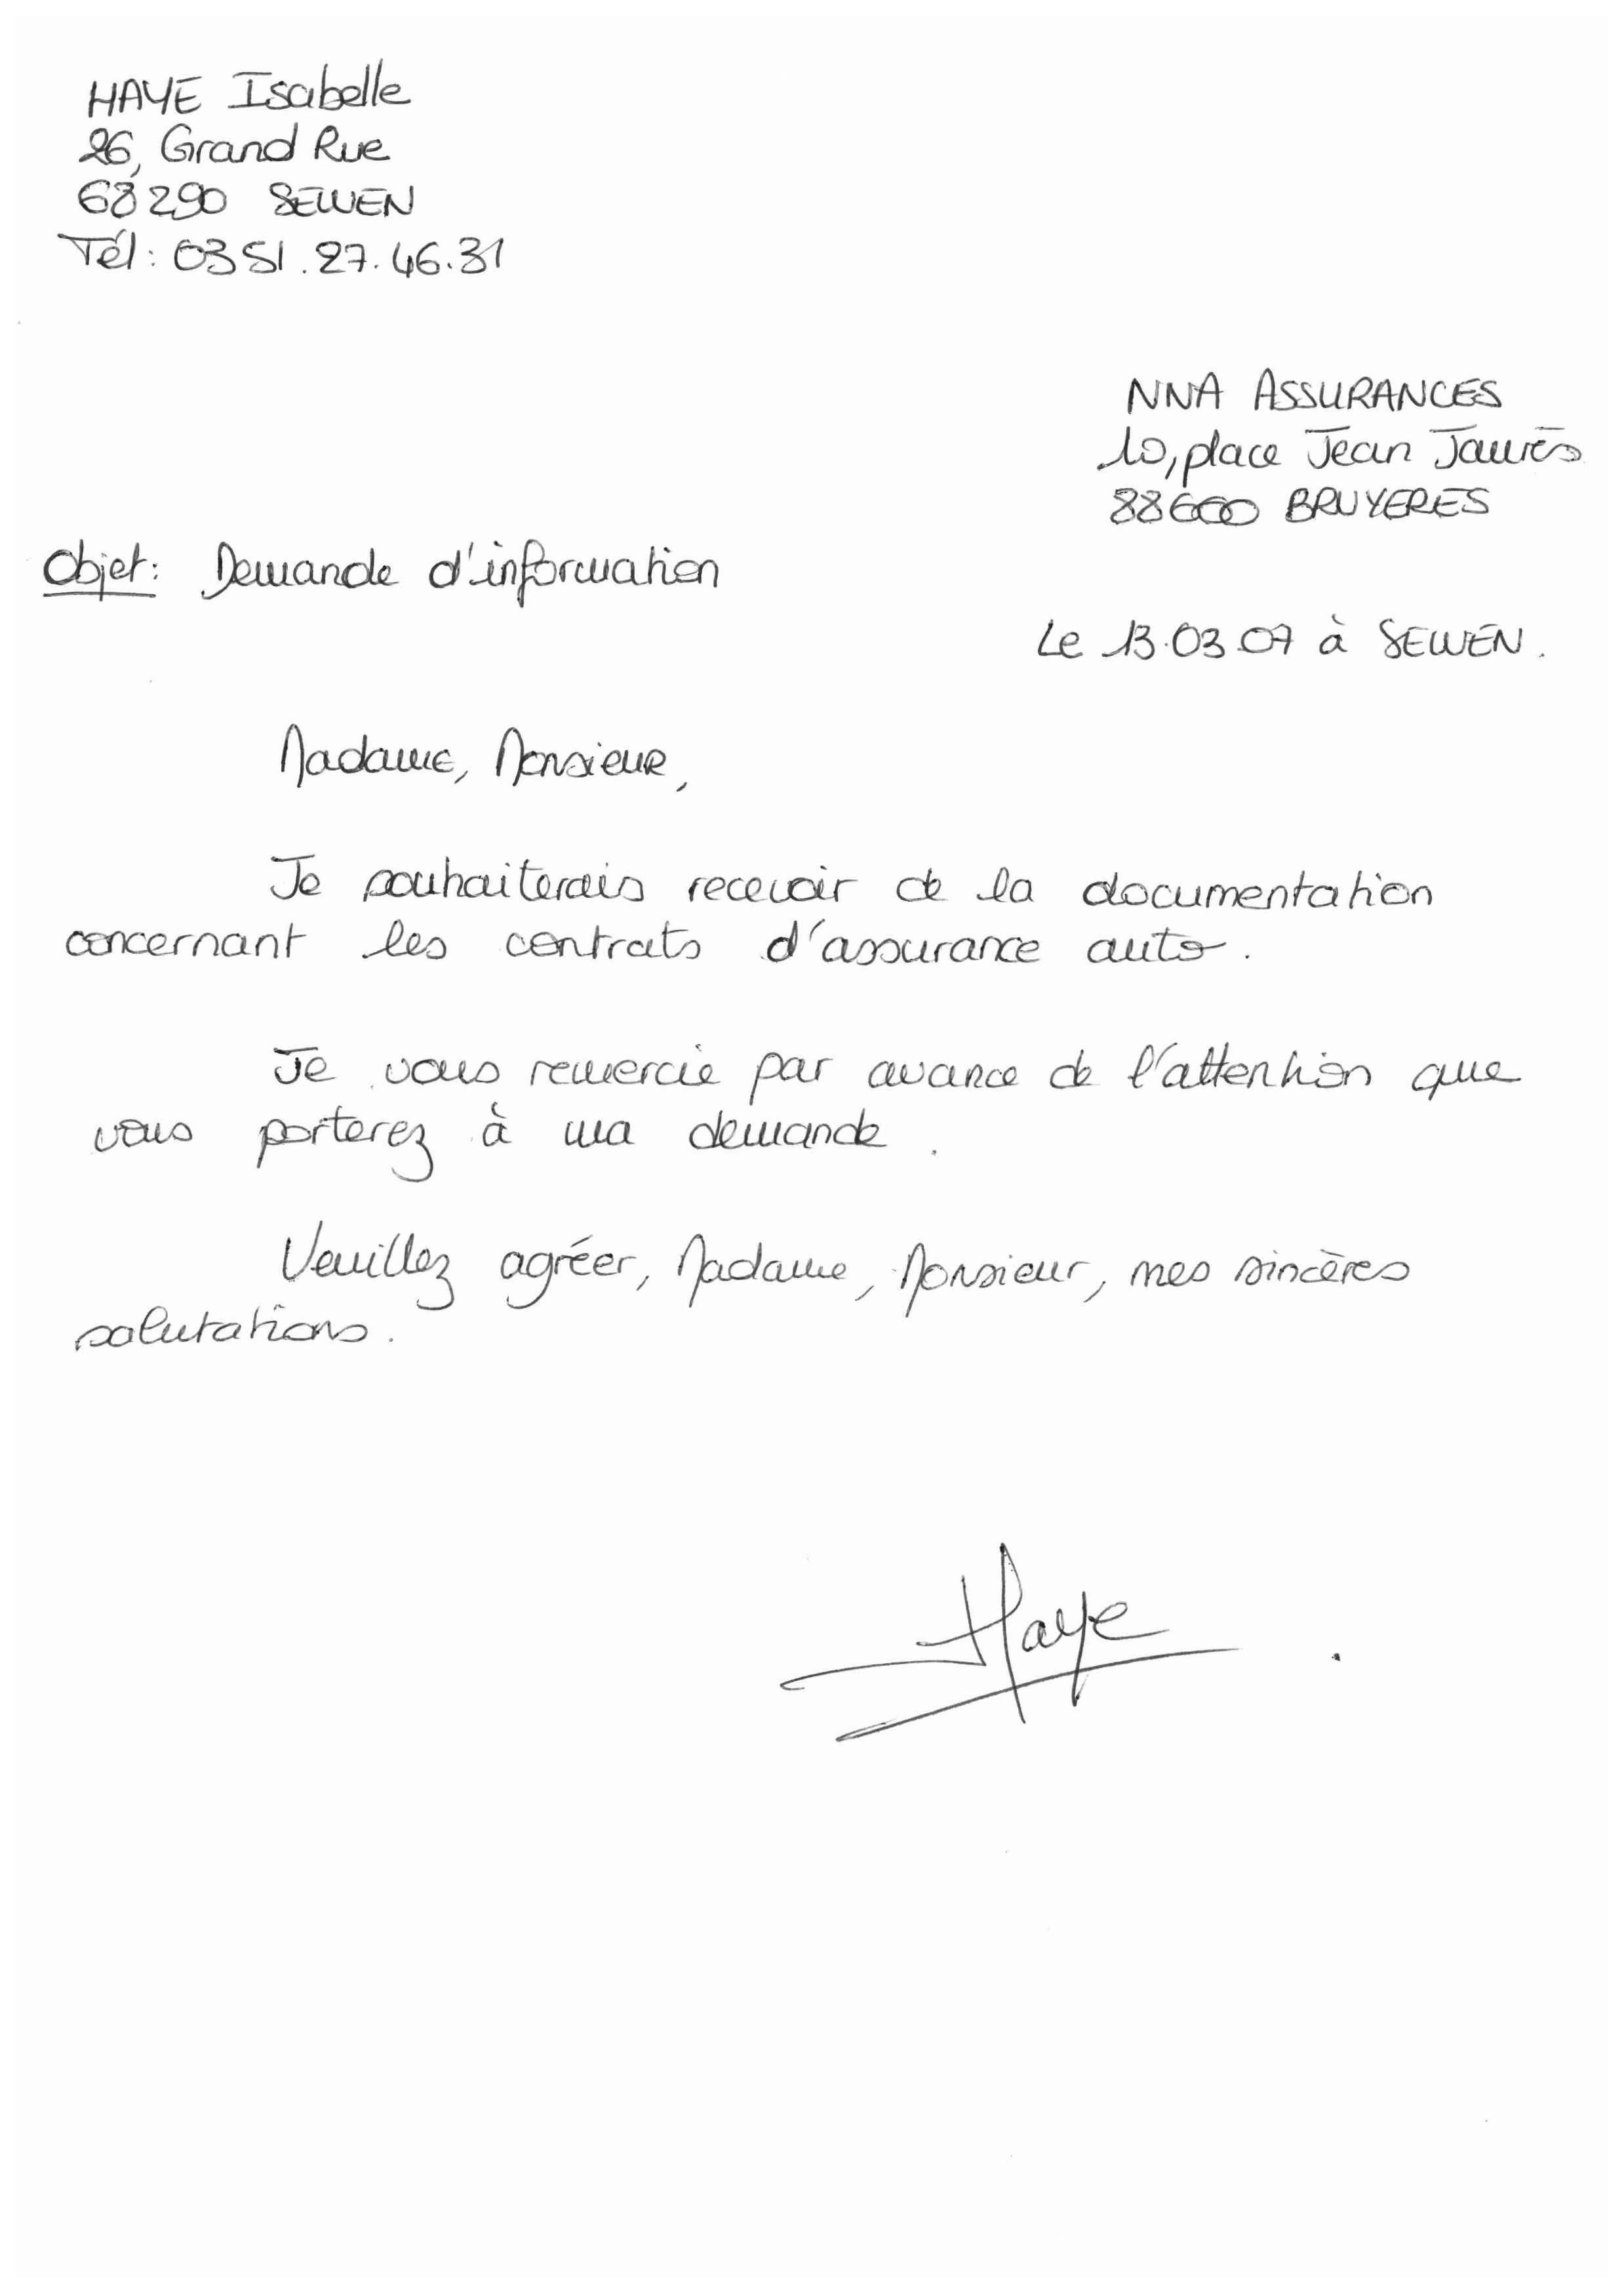 HAYE Isabelle
26, Grand Rue
68290 SEWEN
Tél : 03 51.27.46.31
NNA ASSURANCES
10, place Jean Jaurès
88600 BRUYERES
Objet : Demande d'information
Le 13.03.07 à SEWEN.
Madame, Monsieur,
Je souhaiterais recevoir de la documentation
concernant les contrats d'assurance auto.
Je vous remercie par avance de l'attention que
vous porterez à ma demande.
Veuillez agréer, Madame, Monsieur, mes sincères
salutations.
Haye